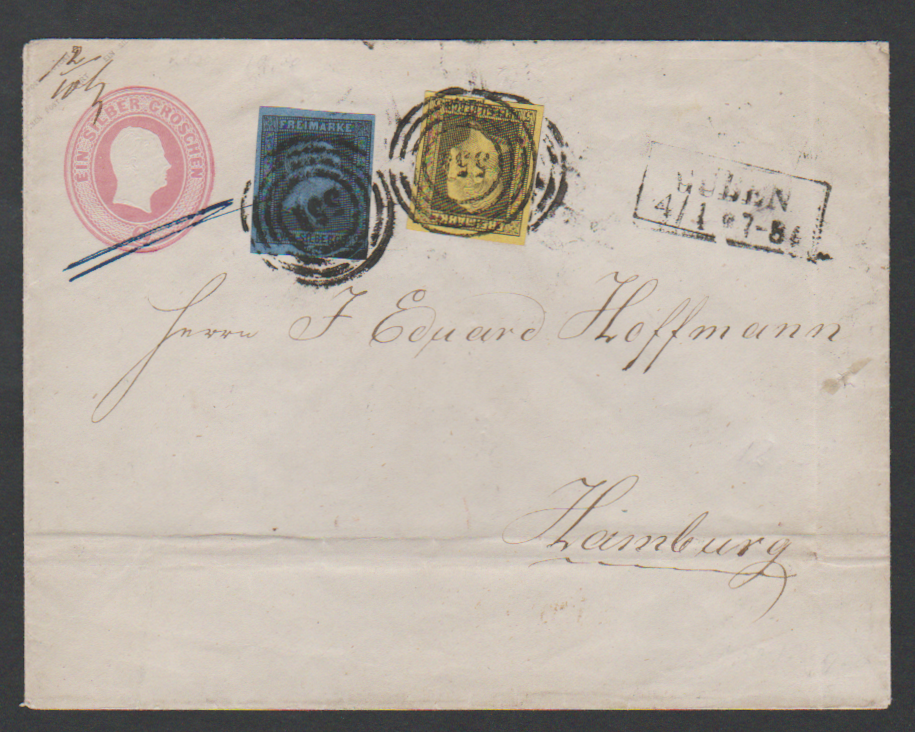 EIN SILBER GROSCHEN
FREIMARKE
551
GUBEN
4/1 * 7-8
Herrn J Eduard Hoffmann
Hamburg